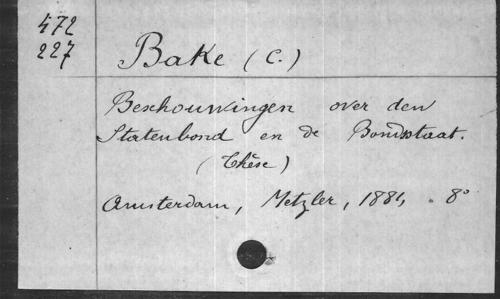 472
227
Bake (C.)
Beschouwingen over den
Statenbond en de Bondsstaat.
(Thèse)
Amsterdam, Metzler, 1881, 8°